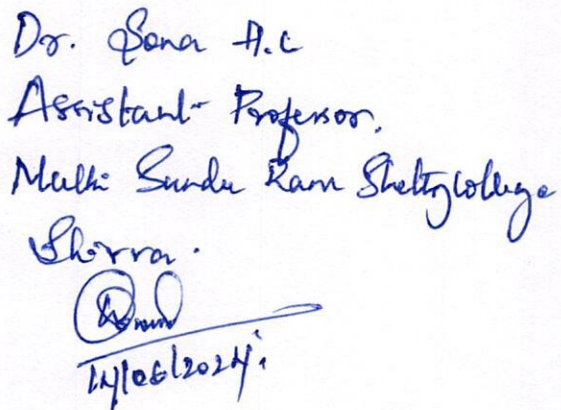 Dr. Sona H.C
Assistant Professor,
Mulki Sunder Ram Shetty College
Shirva.
14/06/2024.